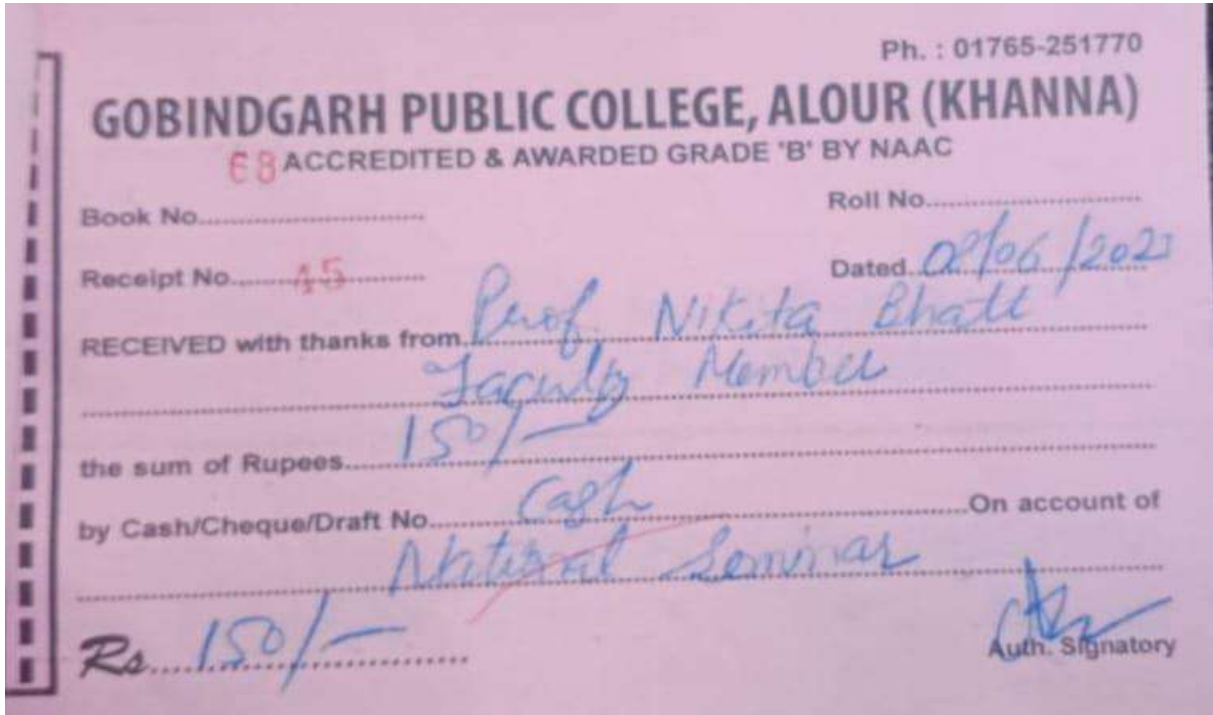 Ph. : 01765-251770
GOBINDGARH PUBLIC COLLEGE, ALOUR (KHANNA)
68 ACCREDITED & AWARDED GRADE 'B' BY NAAC
Book No. Roll No.
Receipt No. 45 Dated
RECEIVED with thanks from Prof. Nikita Bhatt
Faculty Member
the sum of Rupees 150/-
by Cash/Cheque/Draft No. Cash On account of
National Seminar
Rs 150/- Auth. Signatory